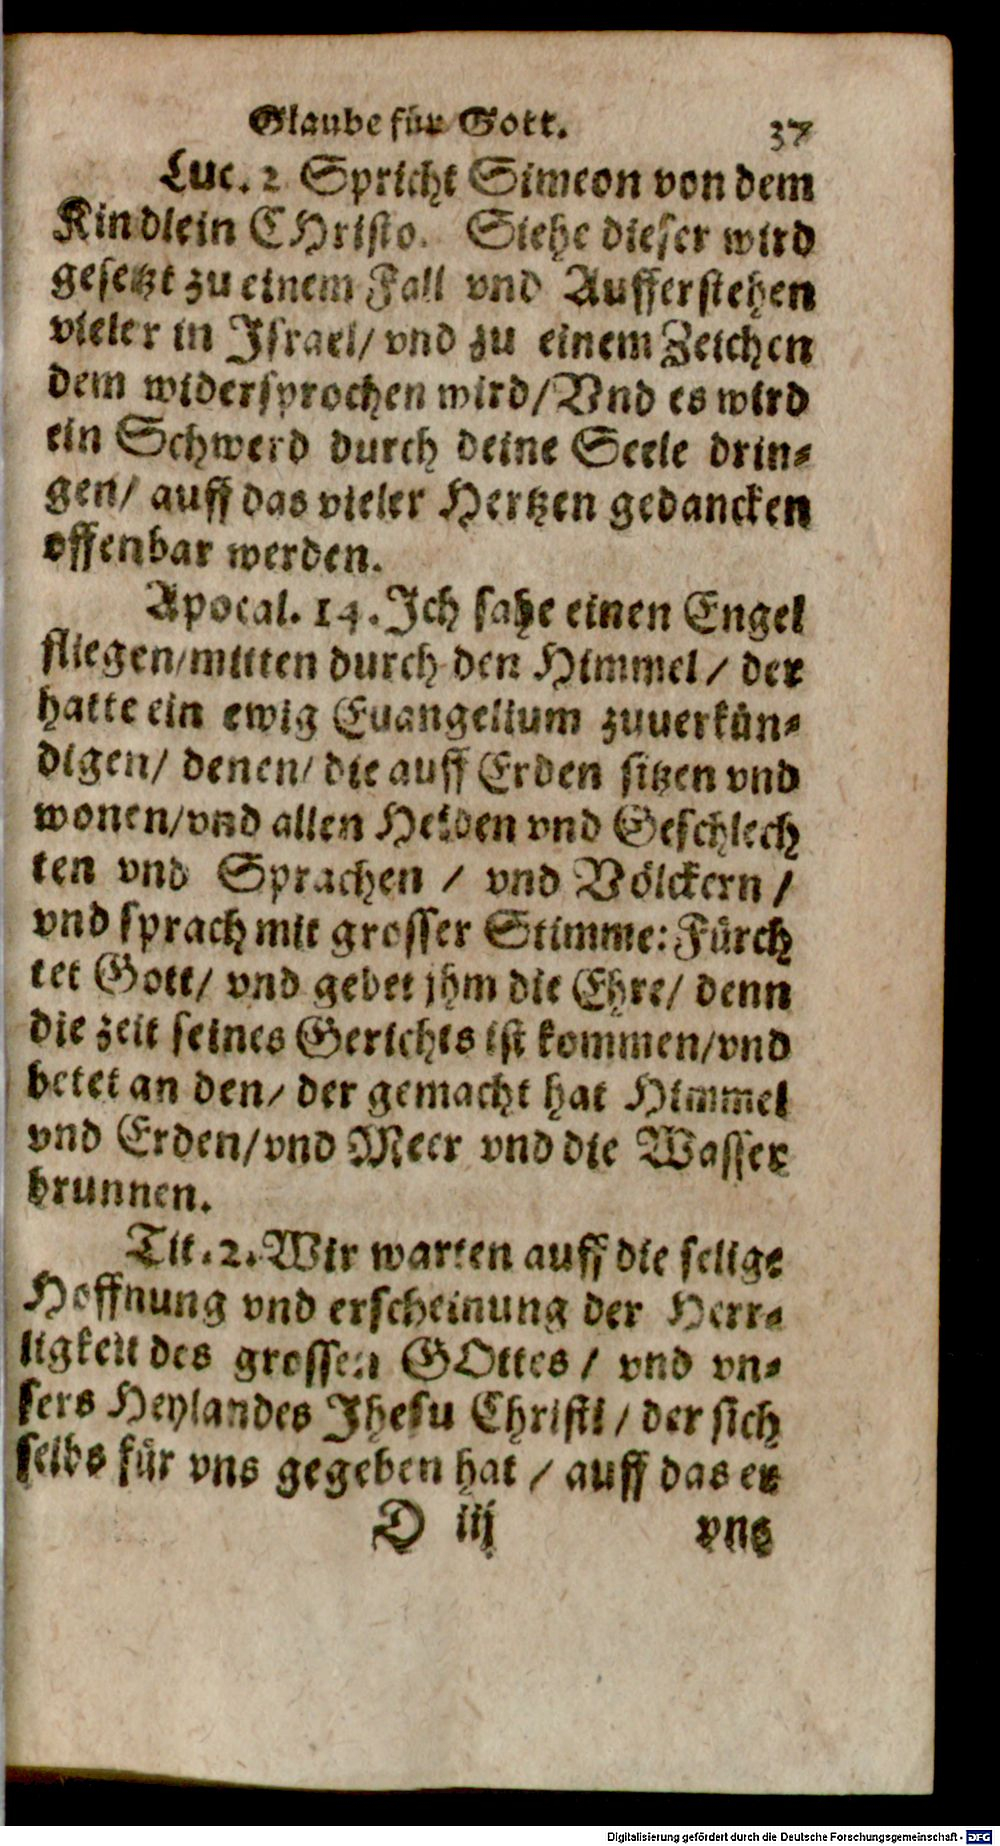 Glaube für Gott. 37
Luc. 2 Spricht Simeon von dem
Kindlein CHristo. Siehe dieser wird
gesetzt zu einem Fall vnd Aufferstehen
vieler in Jsrael/ vnd zu einem Zeichen
dem widersprochen wird/ Vnd es wird
ein Schwerd durch deine Seele drin-
gen/ auff das vieler Hertzen gedancken
offenbar werden.
Apocal. 14. Jch sahe einen Engel
fliegen/ mitten durch den Himmel/ der
hatte ein ewig Euangelium zuuerkün-
digen/ denen/ die auff Erden sitzen vnd
wonen/ vnd allen Heiden vnd Geschlech
ten vnd Sprachen / vnd Völckern /
vnd sprach mit grosser Stimme: Fürch
tet Gott/ vnd gebet jhm die Ehre/ denn
die zeit seines Gerichts ist kommen/ vnd
betet an den/ der gemacht hat Himmel
vnd Erden/ vnd Meer vnd die Wasser
brunnen.
Tit. 2. Wir warten auff die selige
Hoffnung vnd erscheinung der Herr-
ligkeit des grossen GOttes / vnd vn-
sers Heylandes Jhesu Christi / der sich
selbs für vns gegeben hat / auff das er
D iij vns
Digitalisierung gefördert durch die Deutsche Forschungsgemeinschaft - DFG